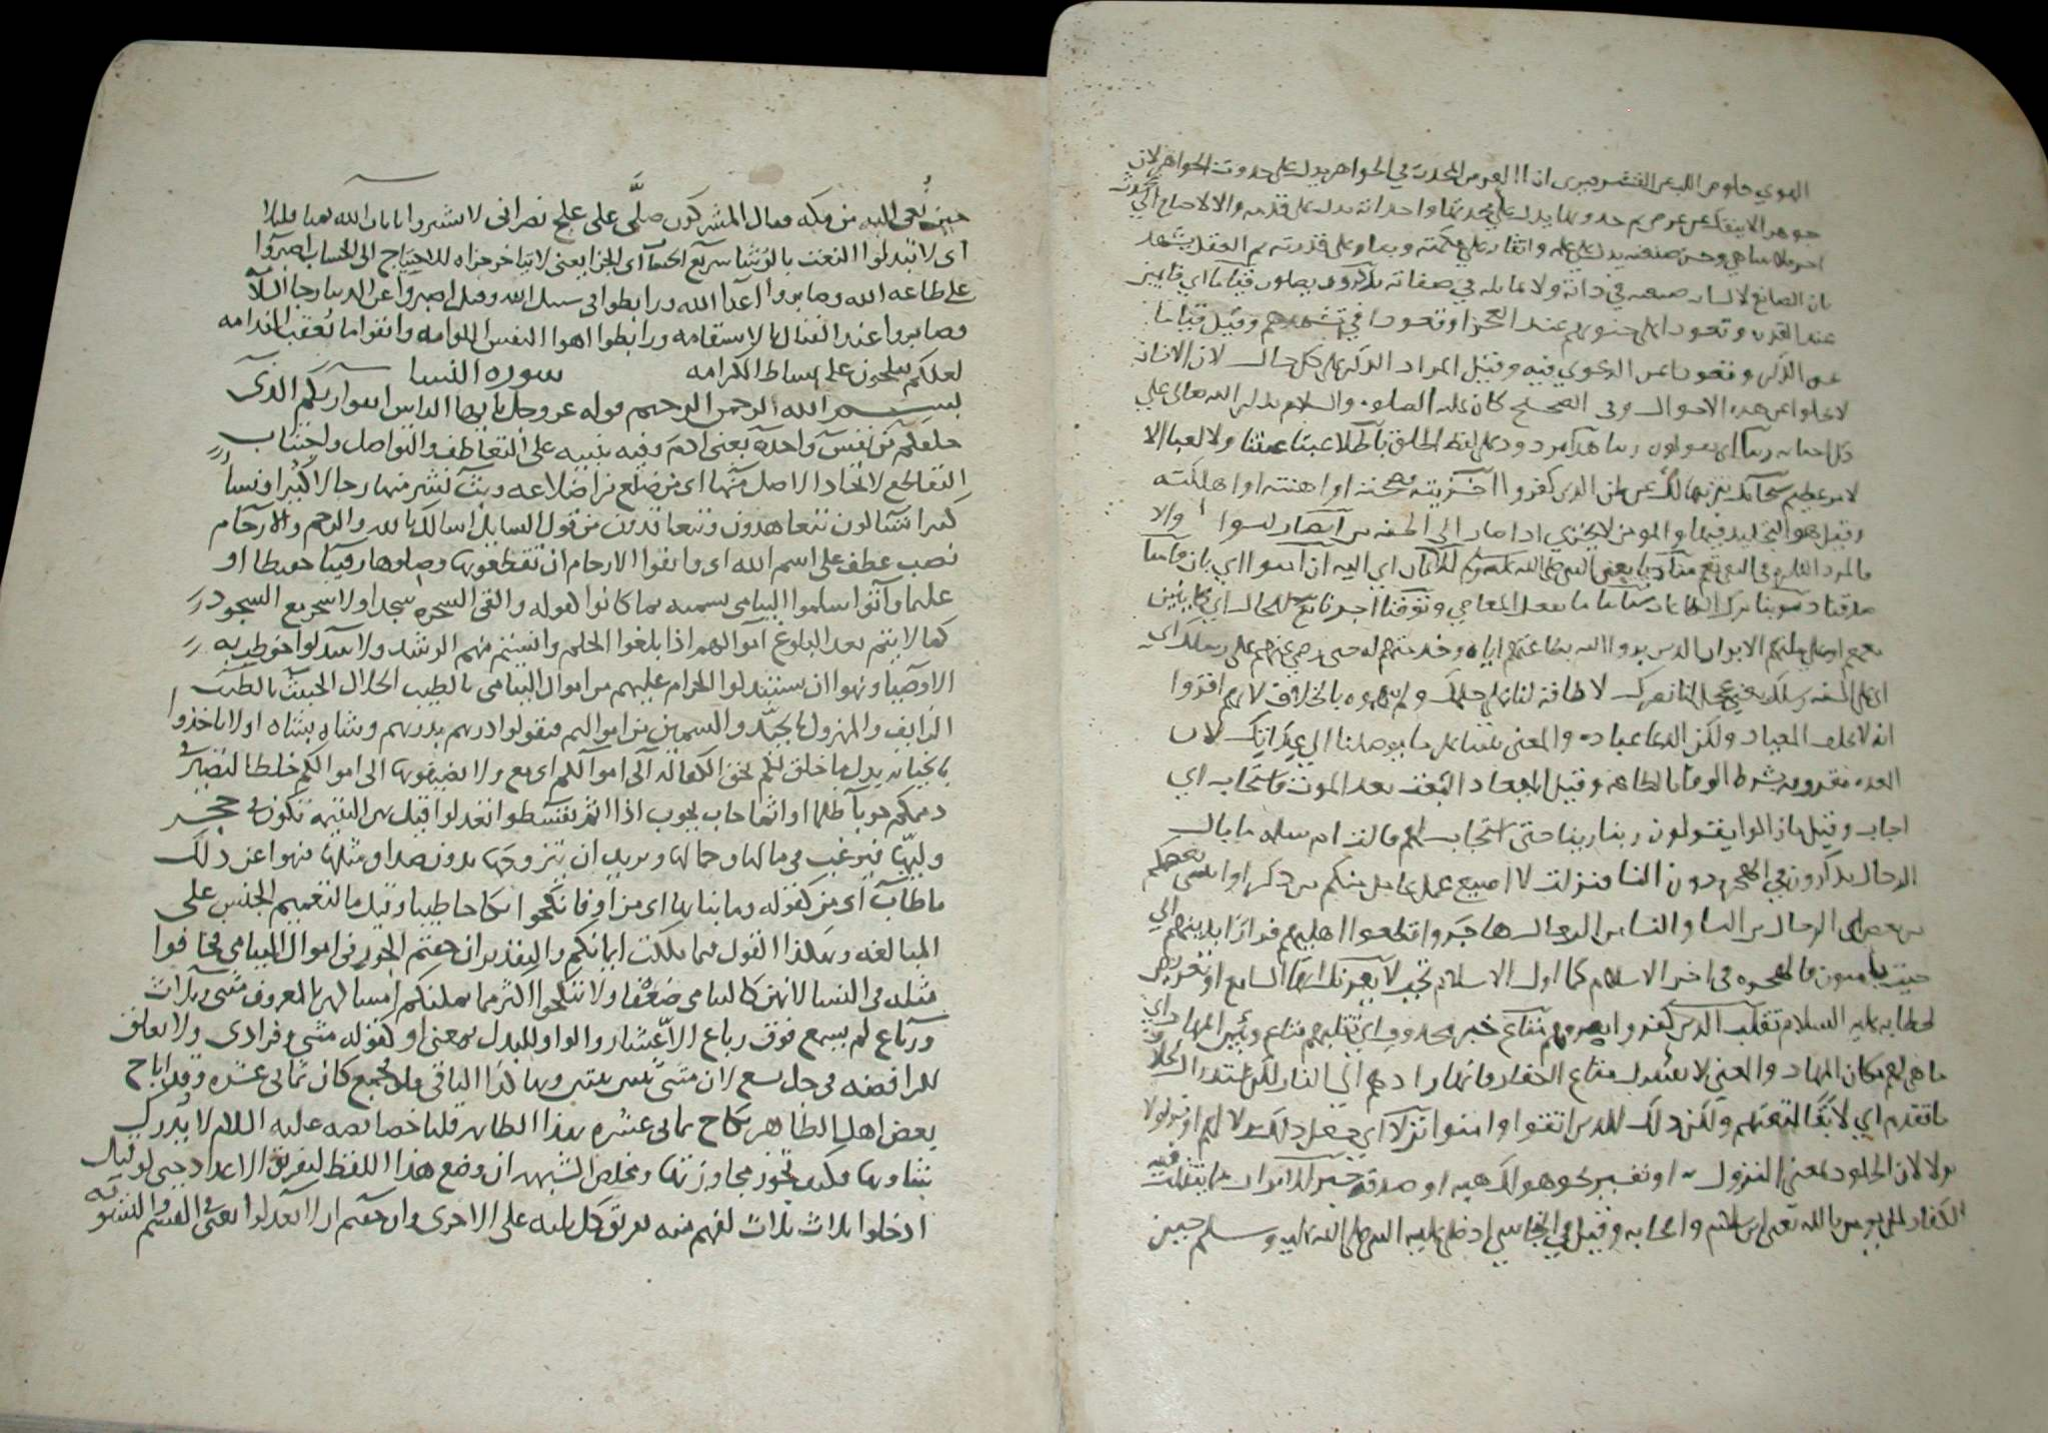 الهوي خلوص اللب عن القشر ويرى ان العرض المحدث في الجواهر يدل على حدوث الجواهر لان
جوهرا لا ينفك عن عرض ثم حدوثها يدل على محدثها واحداثه يدل على قدمه والا لاحتاج الى محدث
اخر بلا تناهي وحسن صنعته يدل على علمه واتقانه على حكمته وبقاوه على قدرته ثم العقل يشهد
بان الصانع لا يشابه صنعه في ذاته ولا يماثله في صفاته يذكرون يصلون قياما اي قايمين
عند القدرة وقعودا وعلى جنوبهم عند العجز او قعودا في تشهدهم وقيل قياما
عن الذكر وقعودا عن الدعوي فيه وقيل المراد الذكر على كل حال لان الانسان
لا يخلوا عن هذه الاحوال وفي الصحيح كان عليه الصلوة والسلام يذكر الله تعالى على
كل احيانه ربنا اي يقولون ربنا هذا مردود على لفظ الخلق باطلا عبثا ولا لعبا الا
لامر عظيم سبحانك تنزيها لك عن ظن الذين كفروا اخزيته فضحته او اهنته او اهلكته
وقيل هو التخليد فيها والمومن لا يخزي اذا صار الى الجنة من انصار ليسوا والا
مناديا يعني النبي صلى الله عليه وسلم للايمان اي اليه ان امنوا اي بان فامنا
صدقنا ذنوبنا ترك الطاعات سياتنا فعل المعاصي وتوفنا
معهم الابرار الذين بروا الله بطاعتهم اياه وخدمتهم له حتى رضي عنهم على رسلك اي
على السنة رسلك لا طاقة لنا على حلمك ولم يتهموه بالخلاف لانهم اقروا
انه لا يخلف الميعاد ولكن الدعا عبادة والمعنى ثبتنا على ما يوصلنا الى عداتك لان
العدة مقرونة بشرط الوفا بالطاعة وقيل الميعاد البعث بعد الموت فاستجاب اي
اجاب وقيل ما زالوا يقولون ربنا ربنا حتى استجاب لهم قالت ام سلمة ما بال
الرجال يذكرون في الهجرة دون النسا فنزلت لا اضيع عمل عامل منكم من ذكر او انثى بعضكم
من بعض اي الرجال من النسا والنسا من الرجال هاجروا قطعوا اهليهم فرارا بدينهم الي
حيث يامنون فالهجرة في اخر الاسلام كما اول الاسلام تجب لا يغرنك ايها السامع او تعريض
لخطابه عليه السلام تقلب الذين كفروا متاع خبر محذوف اي تقلبهم متاع وبئس المهاد اي
ما هي لهم مكان المهاد والمعنى لا يغرنك متاع الكفار فانهاردهم الى النار لكن استدراك لكلام
ما تقدم اي لا بقا لمتعتهم ولكن ذلك للذين اتقوا وامنوا نزلا اي جعل ذلك نزلا لهم او نزلوا
نزلا لان الخلود بمعنى النزول او تفسير كهو هبة او صدقة خير للابرار مما يتقلب فيه
الكفار لمن يومن بالله يعني ابن سلام واصحابه وقيل في النجاشي اذ صلى عليه النبي صلى الله عليه وسلم حين
حين نعى اليه من مكة فقال المشركون صلى على علج نصراني لا يشترون بايات الله ثمنا قليلا
اى لا تبدلوا النعت بالرشا سريع الحساب اى الجزا يعنى لا يتاخر جزاه للاحتياج الى الحساب اصبروا
على طاعة الله وصابروا اعدا الله ورابطوا فى سبيل الله وقيل اصبروا عن الدنيا رجا السلامة
وصابروا عند القتال بالاستقامة ورابطوا اهوا النفس اللوامة واتقوا ما يعقب الندامة
لعلكم تفلحون على بساط الكرامة سورة النسا
بسم الله الرحمن الرحيم قوله عز وجل يا ايها الناس اتقوا ربكم الذى
خلقكم من نفس واحدة يعنى ادم وفيه تنبيه على التعاطف والتواصل واجتناب
التقاطع لاتحاد الاصل منها اى من ضلع من اضلاعه وبث نشر منهما رجالا كثيرا ونسا
كثيرا تسالون تتعاهدون وتتعاقدون من قول السايل اسالك بالله والرحم والارحام
نصب عطف على اسم الله اى واتقوا الارحام ان تقطعوها وصلوها رقيبا حفيظا او
عليما واتوا سلموا اليتامى سميه بما كانوا كقوله والقى السحرة سجدا ولا سحر مع السجود
كما لا يتم بعد البلوغ اموالهم اذا بلغوا الحلم وانستم منهم الرشد ولا تتبدلوا خوطب به
الاوصيا ونهوا ان يستبدلوا الحرام عليهم من اموال اليتامى بالطيب الحلال الخبيث بالطيب
الزايف والمهزول بالجيد والسمين من اموالهم فتقولوا درهم بدرهم وشاة بشاة او لا تاخذوا
بالخيانة بدل ما خلق لكم بحق الكفالة الى اموالكم اى مع ولا تضيفوها الى اموالكم خلطا لتصير
دمكم حوبا ظلما او اثما حاب يحوب اذا اثم تقسطوا تعدلوا قيل هى اليتيمة تكون فى حجر
وليها فيرغب فى مالها وجمالها ويريد ان يتزوجها بدون صداق مثلها فنهوا عن ذلك
ما طاب اى من كقوله وما بناها اى من او فانكحوا نكاحا طيبا وقيل ما لتعميم الجنس على
المبالغة وهكذا القول فيما ملكت ايمانكم والتقدير ان خفتم الجور فى اموال اليتامى فخافوا
مثله فى النسا لانهن كاليتامى ضعفا ولا تنكحوا اكثر مما يمكنكم امساكهن بالمعروف مثنى وثلاث
ورباع لم يسمع فوق رباع الا عشار والواو للبدل بمعنى او كقوله مثنى وفرادى ولا تعلق
للرافضة فى حل تسع لان مثنى ثنتين ثنتين وهكذا الباقى فلا تجمع كان ثمانى عشرة وقد اباح
بعض اهل الظاهر نكاح ثمانى عشرة بهذا الظاهر قلنا خصايصه عليه السلام لا يدرك
شاوها فكيف تجوز مجاوزتها ومخلص الشبهة ان وضع هذا اللفظ لتفريق الاعداد حتى لو قيل
ادخلوا ثلاث ثلاث لفهم منه تفريق كل ثلثة على الاخرى وان خفتم ان لا تعدلوا يعنى فى القسم والتسوية